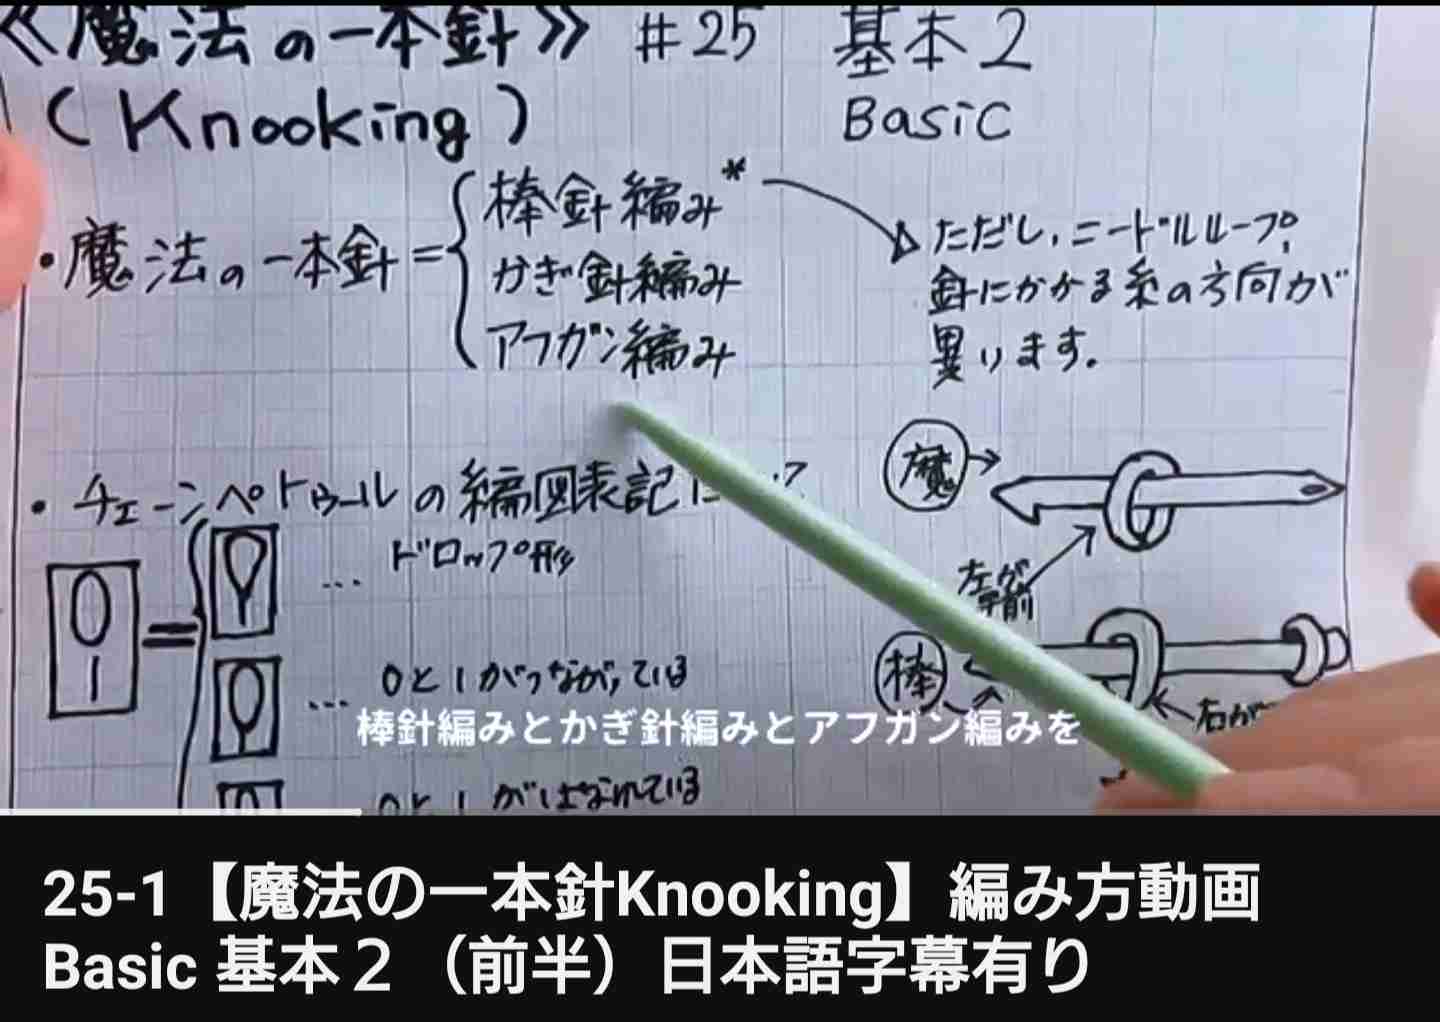 《魔法の一本針》 #25 基本2
(Knooking) Basic
・魔法の一本針=
棒針編み*
かぎ針編み
アフガン編み
ただし、ニードルループ
針にかかる糸の方向が
異ります。
・チェーンペトゥールの編図表記に
0
1
ドロップ形
0と1がつながっている
0と1がはなれている
魔
左が
手前
棒
右が
棒針編みとかぎ針編みとアフガン編みを
25-1【魔法の一本針Knooking】編み方動画
Basic 基本２（前半）日本語字幕有り